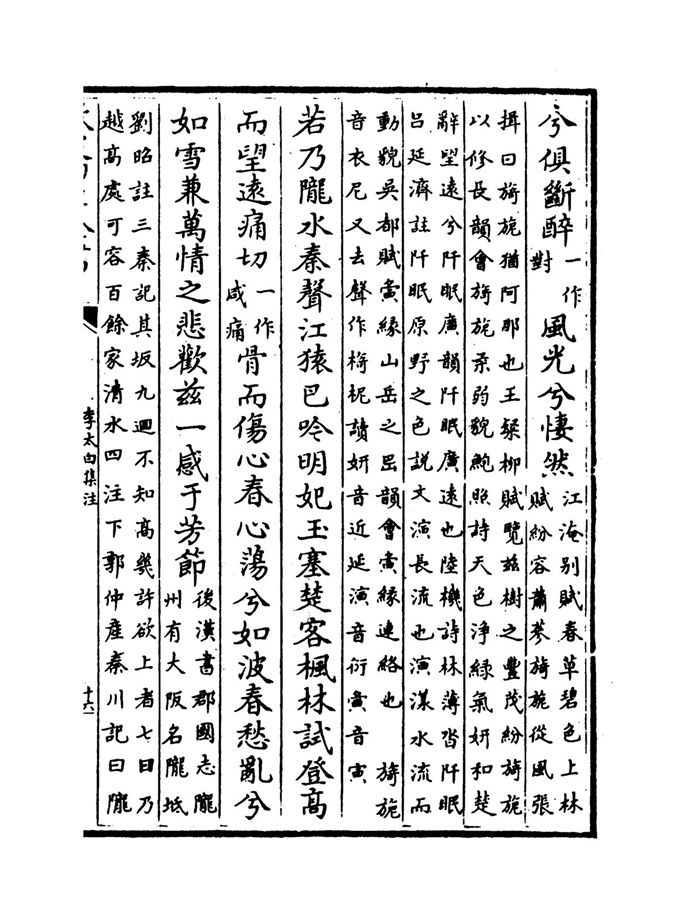 兮俱斷醉一作對風光兮悽然江淹别賦春草碧色上林賦紛容蕭蔘旖旎從風張
揖曰旖旎猶阿那也王粲柳賦覽兹樹之豐茂紛旖旎
以修長韻會旖旎柔弱貌鮑照詩天色浄緑氣妍和楚
辭望遠兮阡眠廣韻阡眠廣遠也陸機詩林薄沓阡眠
吕延濟註阡眠原野之色説文演長流也演漾水流而
動貌吳都賦夤緣山岳之岊韻會夤緣連絡也 旖旎
音衣尼又去聲作椅柅讀妍音近延演音衍夤音寅
若乃隴水秦聲江猿巴吟明妃玉塞楚客楓林試登高
而望遠痛切一作咸痛骨而傷心春心蕩兮如波春愁亂兮
如雪兼萬情之悲歡兹一感于芳節後漢書郡國志隴州有大阪名隴坻
劉昭註三秦記其坂九迴不知高幾許欲上者七日乃
越高處可容百餘家清水四注下郭仲産秦川記曰隴
李太白集注
十六